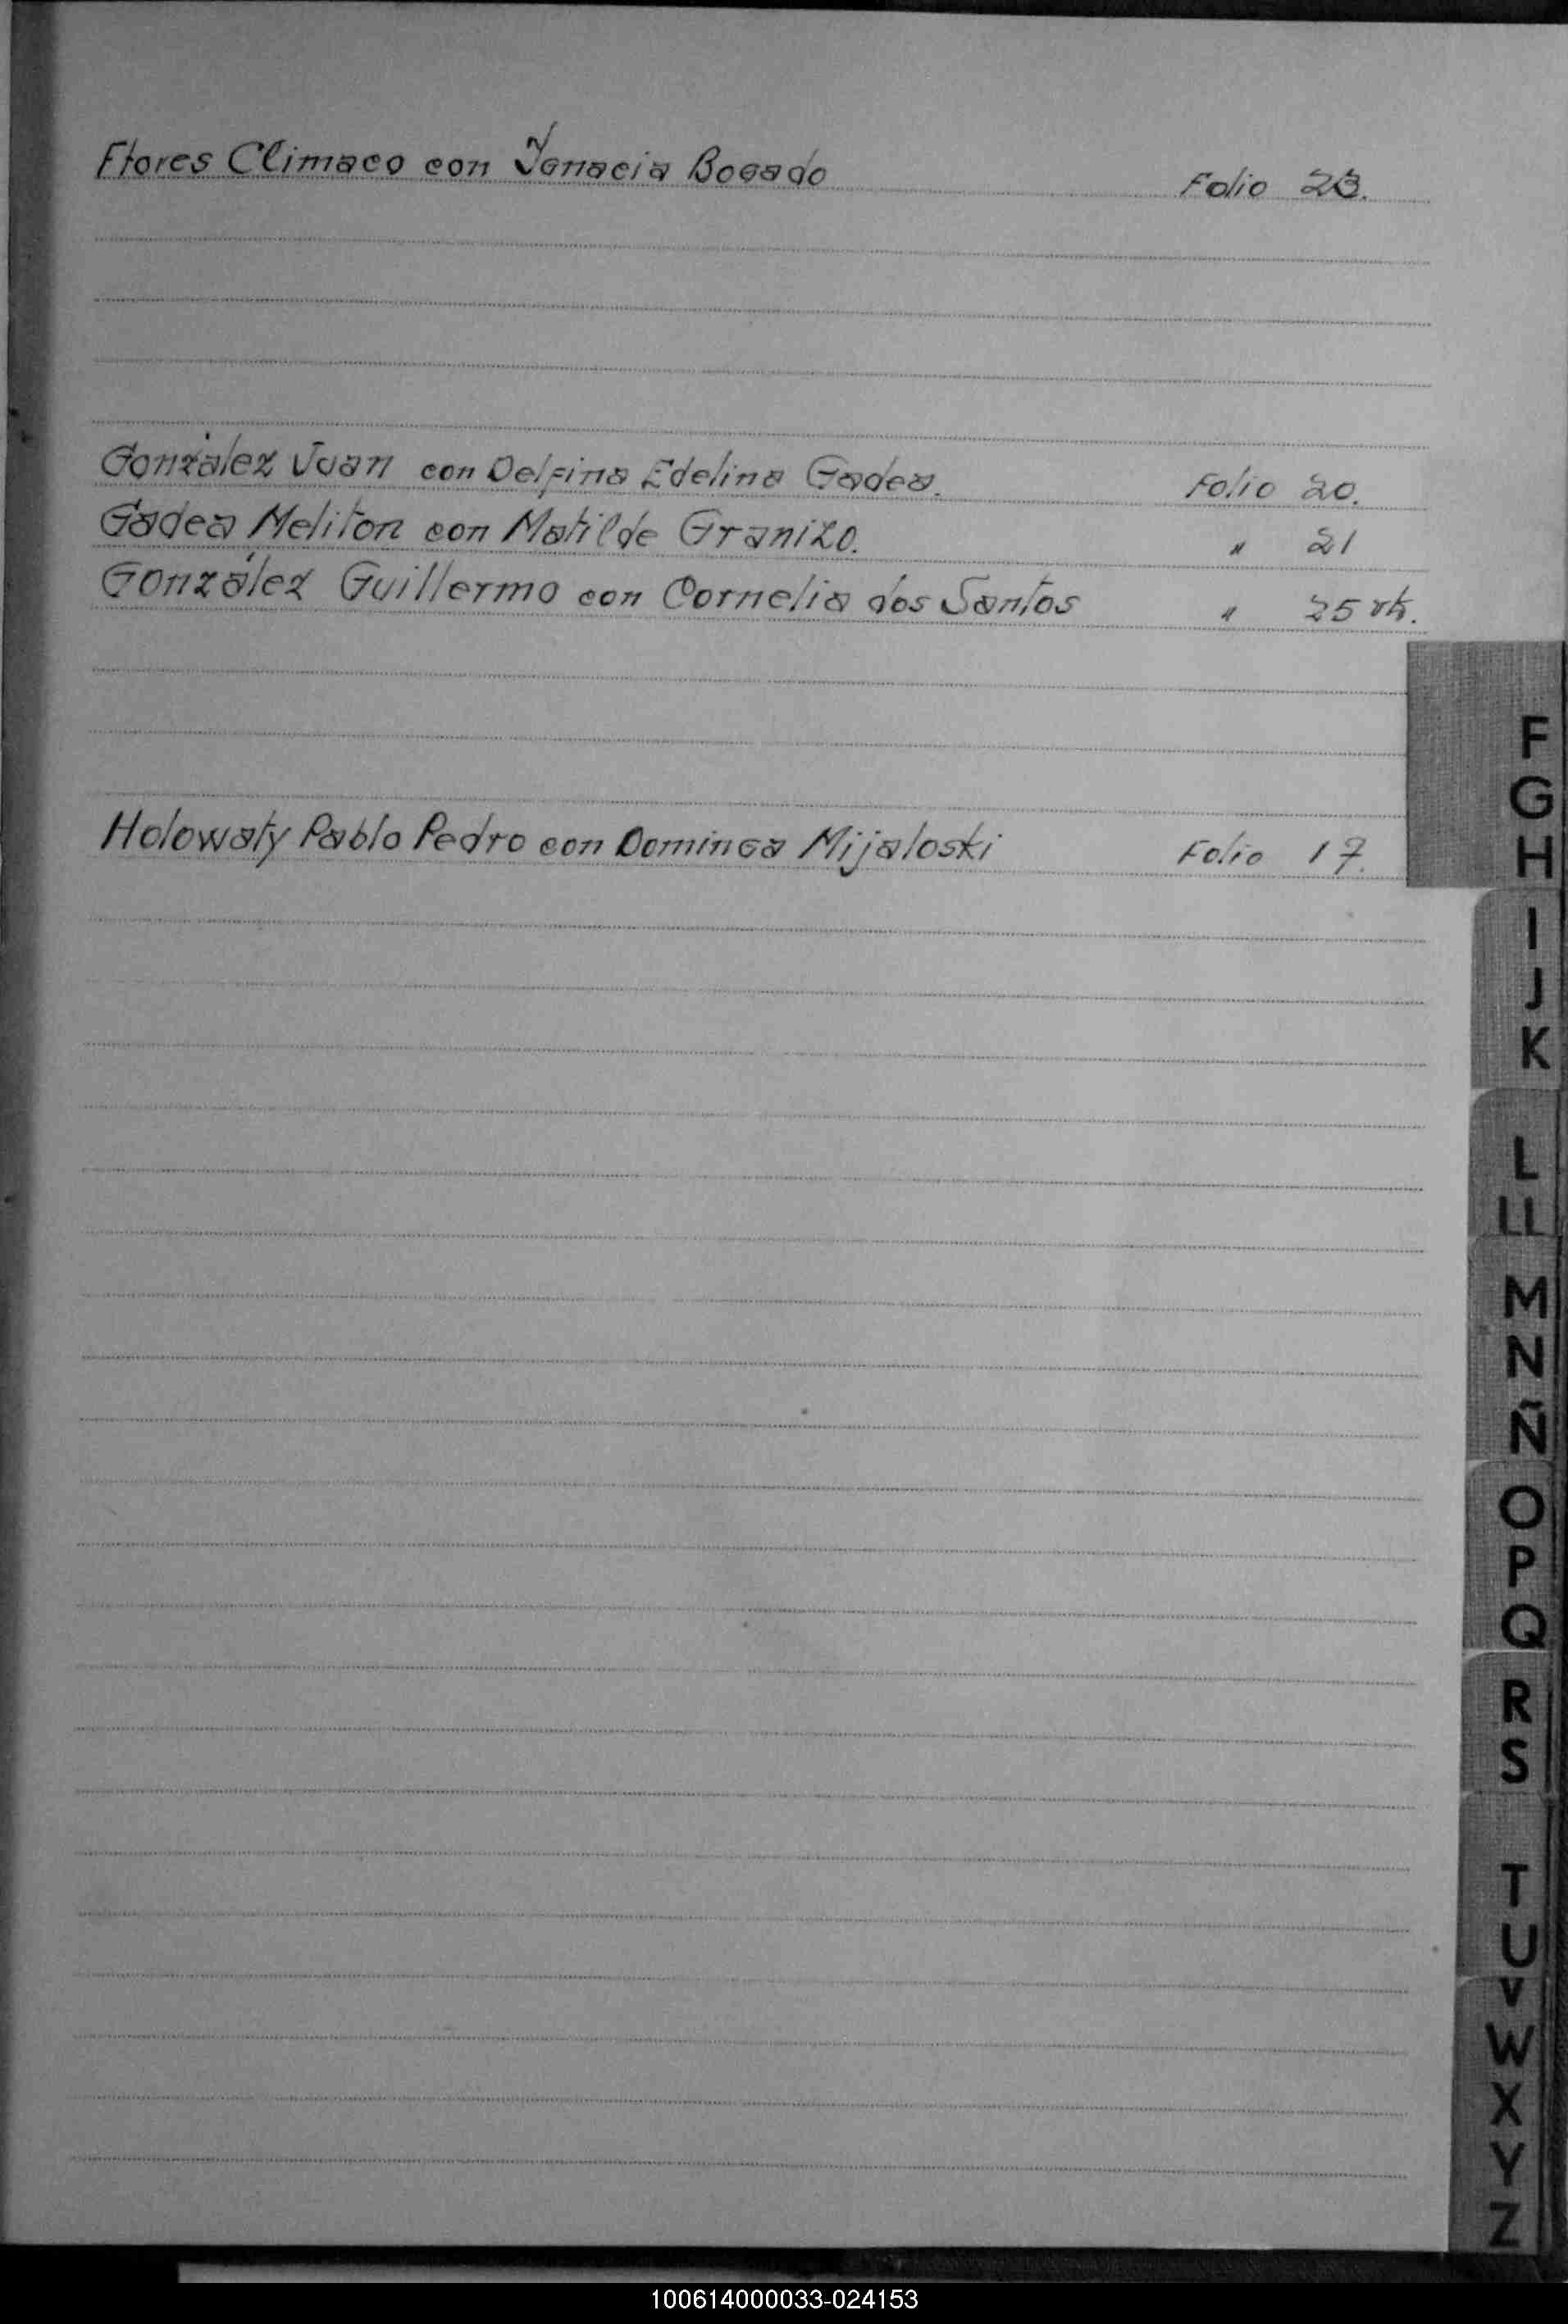 Flores Climaco con Ignacia Bogado Folio 23.
González Juan con Delfina Edelina Gadea. Folio 20.
Gadea Meliton con Matilde Granizo. " 21
González Guillermo con Cornelia dos Santos " 25 vt.
Holowaty Pablo Pedro con Dominga Mijaloski Folio 17.
F
G
H
I
J
K
L
LL
M
N
Ñ
O
P
Q
R
S
T
U
V
W
X
Y
Z
100614000033-024153